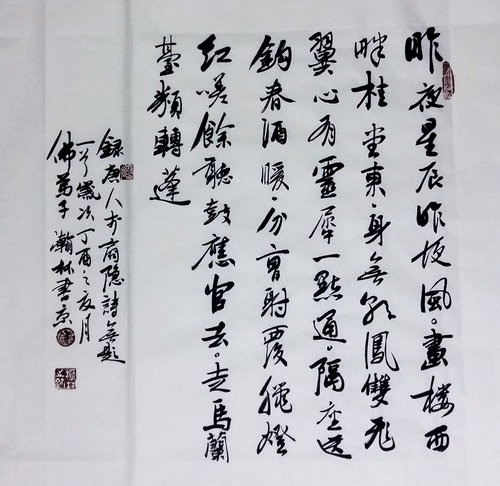 昨夜星辰昨夜風。畫樓西
畔桂堂東。身無彩鳳雙飛
翼心有靈犀一點通。隔座送
鈎春酒暖。分曹射覆蠟燈
紅嗟餘聽鼓應官去。走馬蘭
臺類轉蓬
錄唐人李商隱詩無題
一首歲次丁酉之夏月
佛弟子瀚林書京